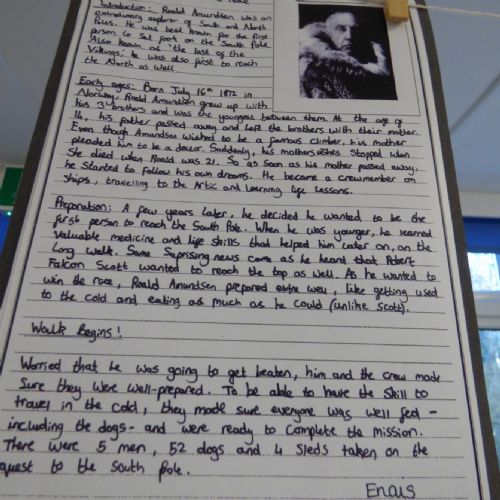 Introduction: Roald Amundsen was an
extraordinary explorer of South and North
Poles. He was best known for the first
person to set foot on the South Pole.
Also known as 'the last of the
Vikings', he was also first to reach
the North as well.
Early ages: Born July 16th 1872 in
Norway, Roald Amundsen grew up with
his 3 brothers and was the youngest between them. At the age of
14, his father passed away and left the brothers with their mother.
Even though Amundsen wished to be a famous climber, his mother
pleaded him to be a doctor. Suddenly, his mothers wishes stopped when
She died when Roald was 21. So as soon as his mother passed away,
he started to follow his own dreams. He became a crewmember on
Ships, travelling to the Artic and learning life lessons.
Preparation: A few years later, he decided he wanted to be the
first person to reach the South Pole. When he was younger, he learned
Valuable medicine and life skills that helped him later on, on the
Long walk. Some Suprising news came as he heard that Robert
Falcon Scott wanted to reach the top as well. As he wanted to
win the race, Roald Amundsen prepared extra well, like getting used
to the cold and eating as much as he could (unlike Scott).
Walk Begins!
Worried that he was going to get beaten, him and the crew made
Sure they were well-prepared. To be able to have the skill to
travel in the cold, they made sure everyone was well fed -
including the dogs - and were ready to complete the mission.
There were 5 men, 52 dogs and 4 sleds taken on the
quest to the south pole.
Enais